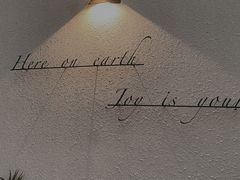 Here on earth
Joy is